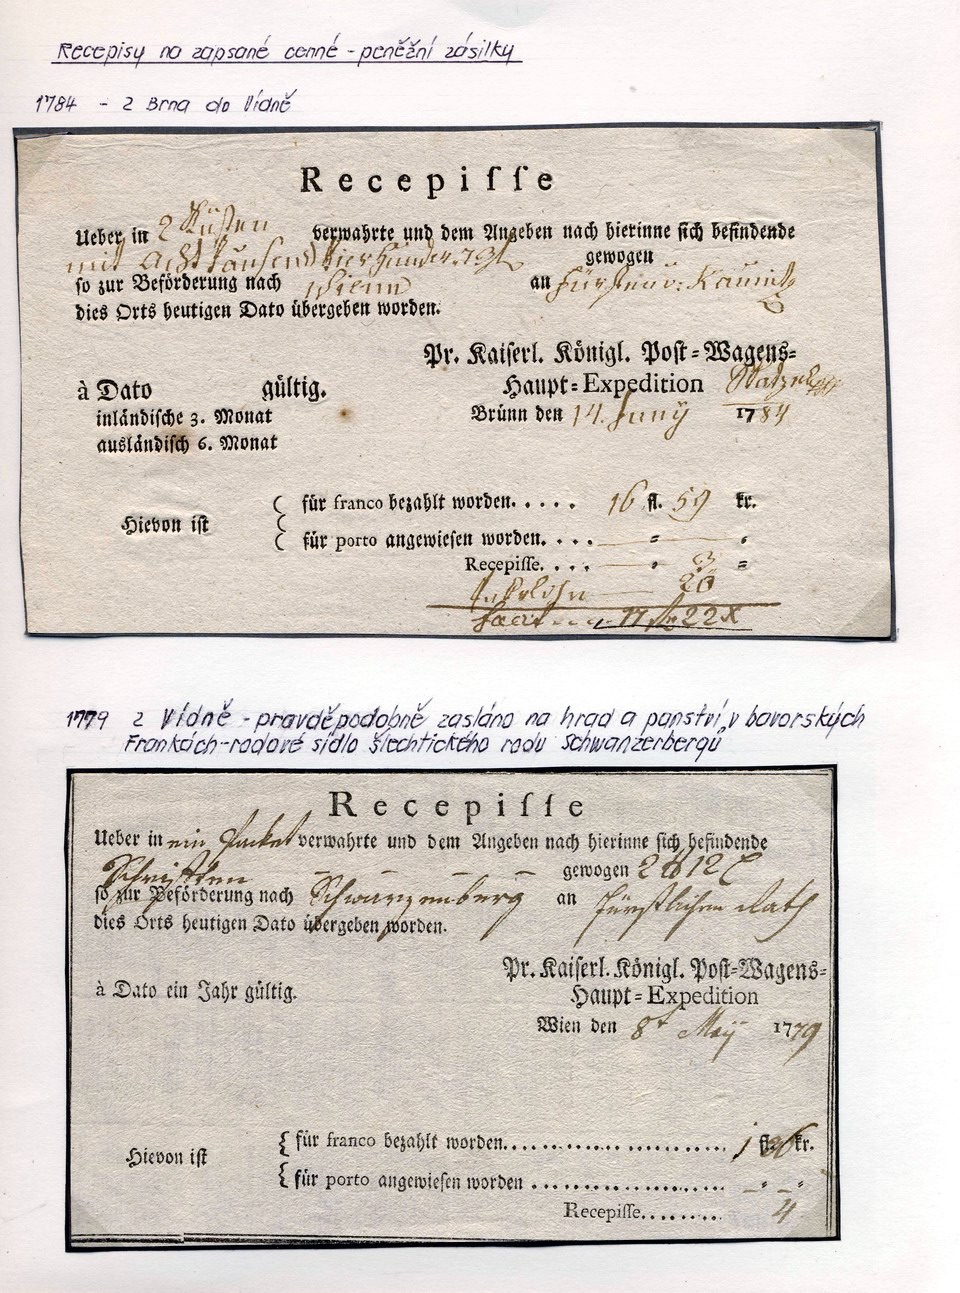 Recepisy na zapsané cenné - peněžní zásilky
1784 - z Brna do Vídně
Recepiſſe
Ueber in 2 Küsten verwahrte und dem Angeben nach hierinne ſich befindende
mit Achttausend vierhundert gewogen
ſo zur Beförderung nach Wienn an Fürsten v: Kaunitz
dies Orts heutigen Dato übergeben worden.
Pr. Kaiſerl. Königl. Poſt=Wagens=
à Dato gültig. Haupt=Expedition
inländiſche 3. Monat Brünn den 14. Juny 1784
ausländiſch 6. Monat
Hievon iſt
für franco bezahlt worden..... 16 fl. 59 kr.
für porto angewieſen worden. ...
Recepiſſe. ... 3
20
17 fl 22 x
1779 z Vídně - pravděpodobně zasláno na hrad a panství v bavorských
Frankách-rodové sídlo šlechtického rodu Schwanzerbergů
Recepiſſe
Ueber in ein Packet verwahrte und dem Angeben nach hierinne ſich befindende
Schriften gewogen 2 ℔ 12
ſo zur Beförderung nach Schwarzenberg an Fürstlichen Rath
dies Orts heutigen Dato übergeben worden.
Pr. Kaiſerl. Königl. Poſt=Wagens=
à Dato ein Jahr gültig. Haupt=Expedition
Wien den 8t Maÿ 1779
Hievon iſt
für franco bezahlt worden........ 1 fl. 26 kr.
für porto angewieſen worden ........
Recepiſſe........ 4